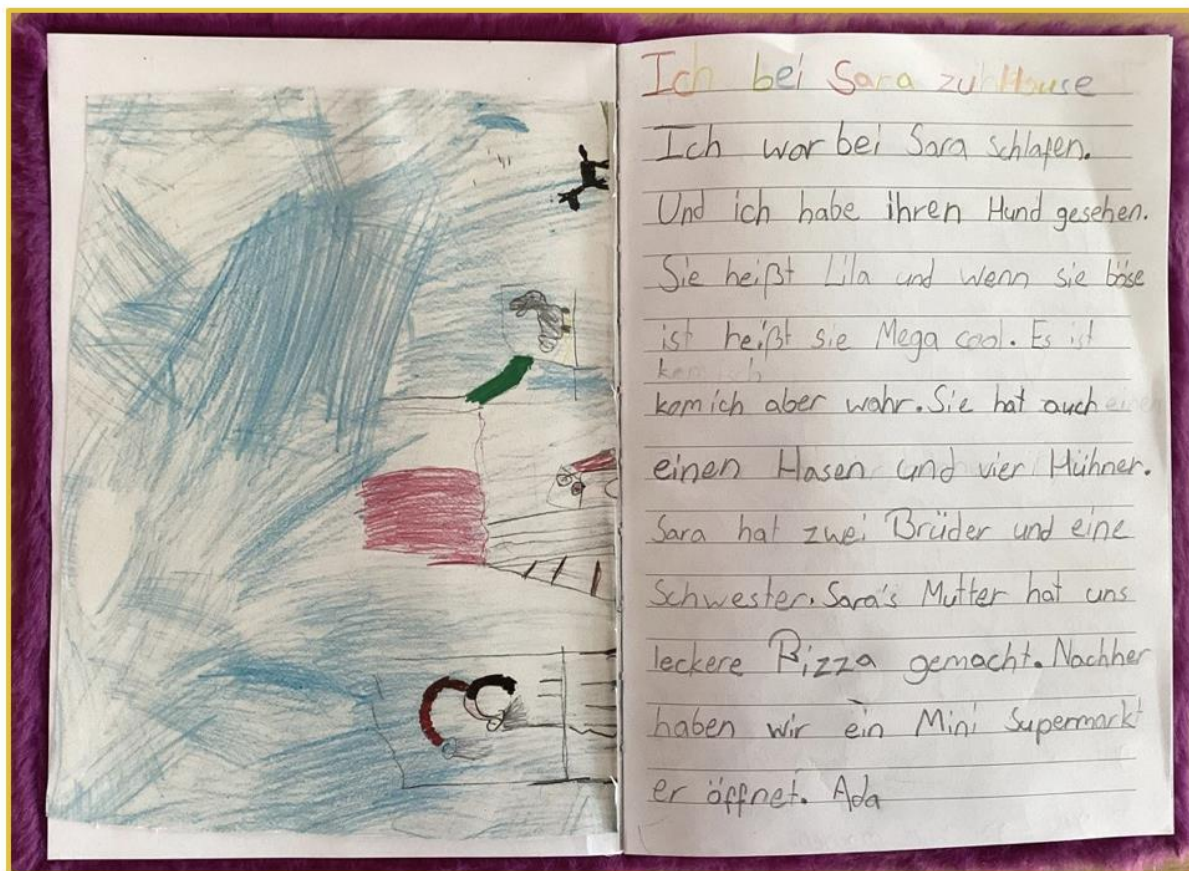 Ich bei Sara zu Hause
Ich war bei Sara schlafen.
Und ich habe ihren Hund gesehen.
Sie heißt Lila und wenn sie böse
ist heißt sie Mega cool. Es ist
komich aber wahr. Sie hat auch
einen Hasen und vier Hühner.
Sara hat zwei Brüder und eine
Schwester. Sara's Mutter hat uns
leckere Pizza gemacht. Nachher
haben wir ein Mini Supermarkt
er öffnet. Ada